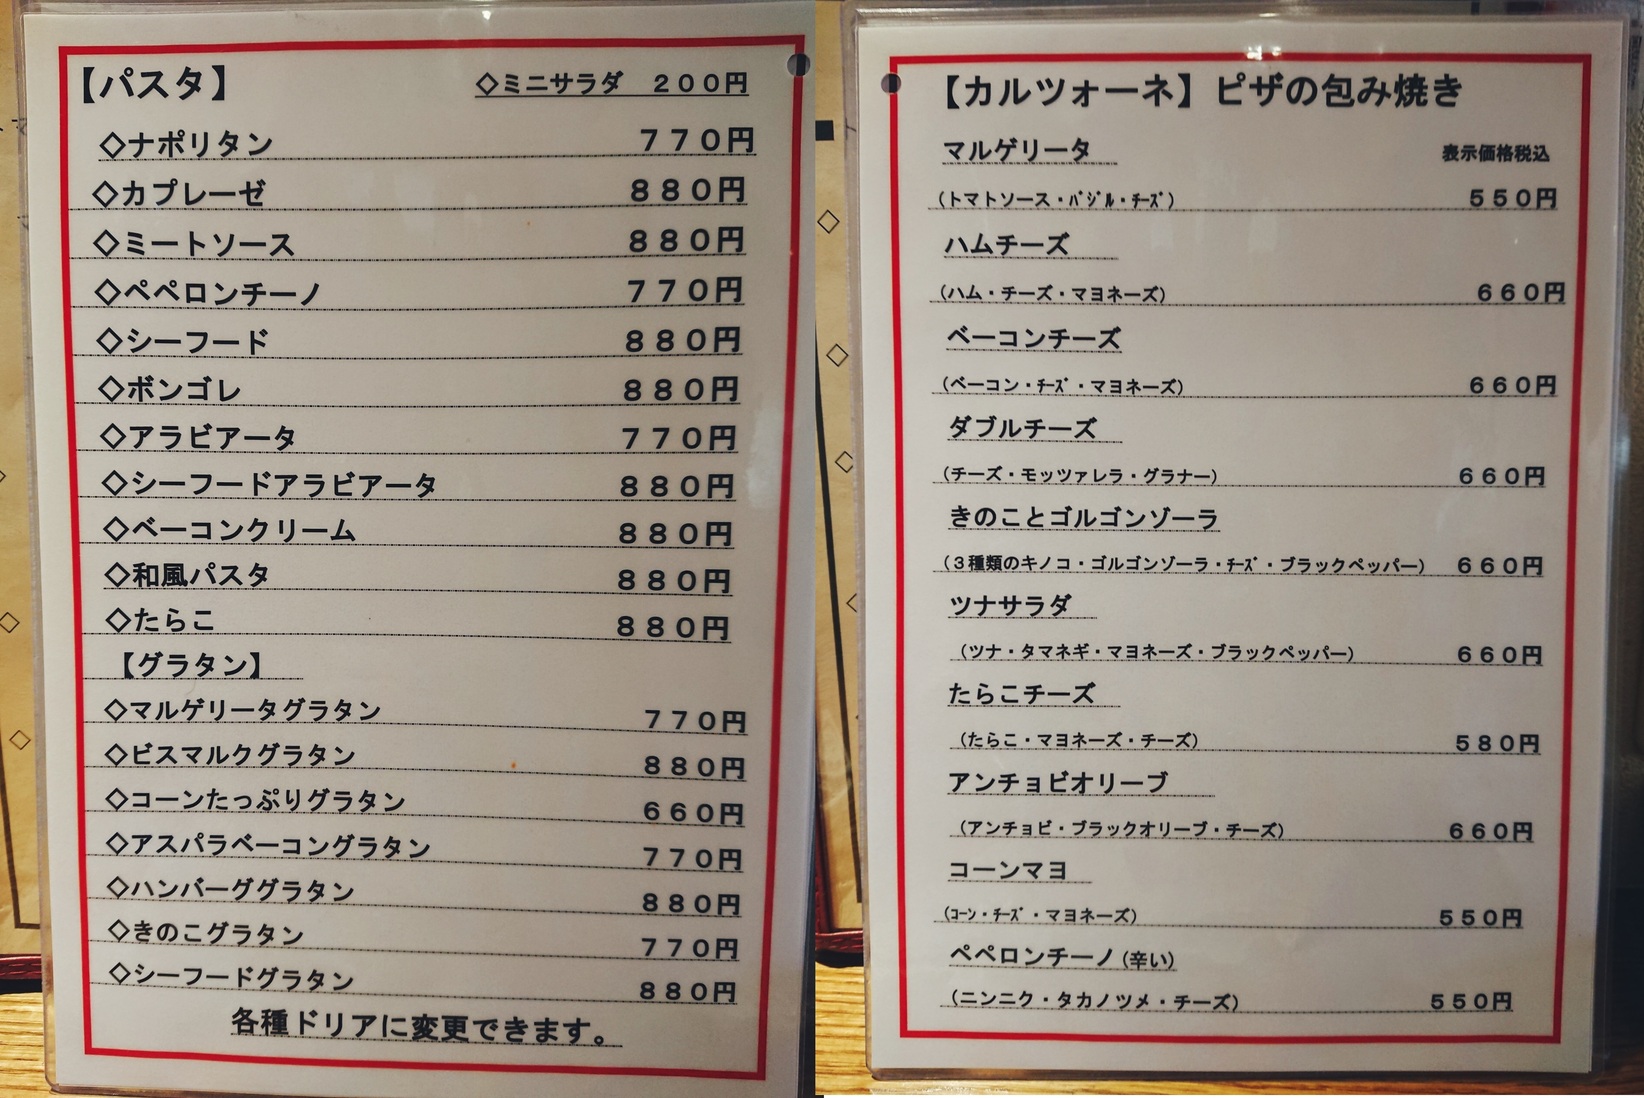 【パスタ】 ◇ミニサラダ 200円
◇ナポリタン 770円
◇カプレーゼ 880円
◇ミートソース 880円
◇ペペロンチーノ 770円
◇シーフード 880円
◇ボンゴレ 880円
◇アラビアータ 770円
◇シーフードアラビアータ 880円
◇ベーコンクリーム 880円
◇和風パスタ 880円
◇たらこ 880円
【グラタン】
◇マルゲリータグラタン 770円
◇ビスマルクグラタン 880円
◇コーンたっぷりグラタン 660円
◇アスパラベーコングラタン 770円
◇ハンバーググラタン 880円
◇きのこグラタン 770円
◇シーフードグラタン 880円
各種ドリアに変更できます。
【カルツォーネ】ピザの包み焼き
マルゲリータ 表示価格税込
(トマトソース・バジル・チーズ) 550円
ハムチーズ
(ハム・チーズ・マヨネーズ) 660円
ベーコンチーズ
(ベーコン・チーズ・マヨネーズ) 660円
ダブルチーズ
(チーズ・モッツァレラ・グラナー) 660円
きのことゴルゴンゾーラ
(3種類のキノコ・ゴルゴンゾーラ・チーズ・ブラックペッパー) 660円
ツナサラダ
(ツナ・タマネギ・マヨネーズ・ブラックペッパー) 660円
たらこチーズ
(たらこ・マヨネーズ・チーズ) 580円
アンチョビオリーブ
(アンチョビ・ブラックオリーブ・チーズ) 660円
コーンマヨ
(コーン・チーズ・マヨネーズ) 550円
ペペロンチーノ(辛い)
(ニンニク・タカノツメ・チーズ) 550円